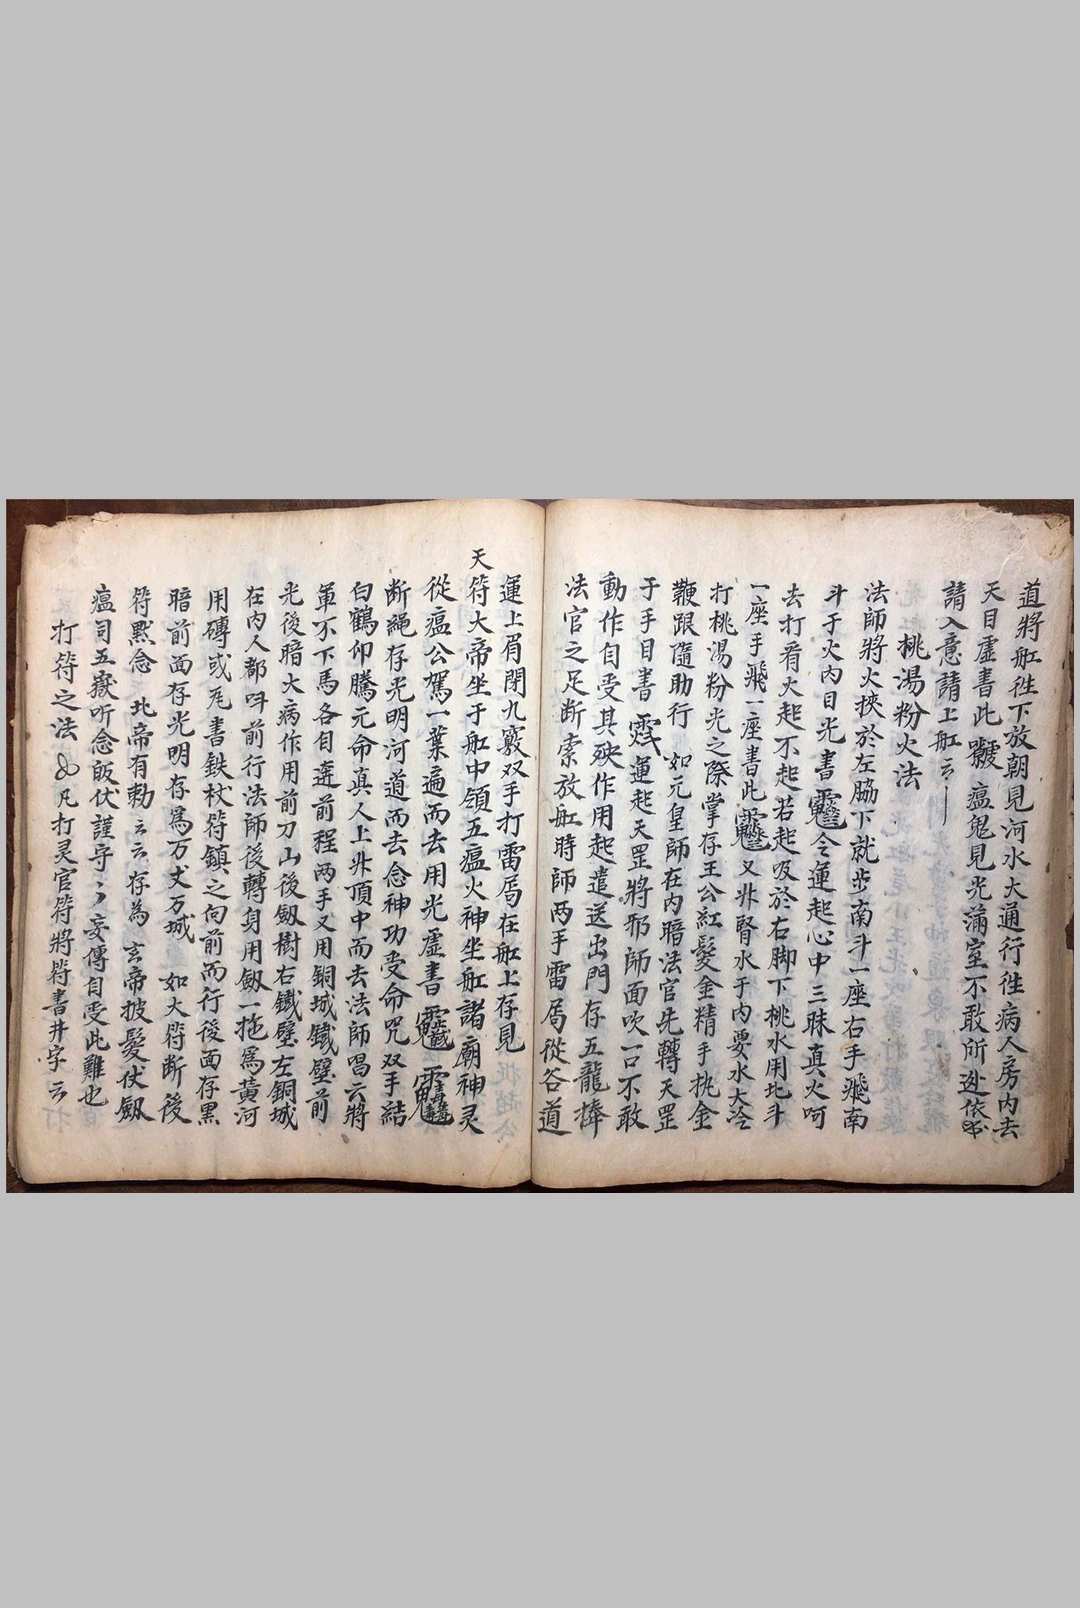 道將舡徃下放朝見河水大通行徃病人房内去
天目虛書此 瘟鬼見光滿室不敢所迯依
請入意請上舡云
桃湯粉火法
法師將火挾於左脇下就步南斗一座右手飛南
斗于火内目光書 令運起心中三昧真火呵
去打看火起不起若起吸於右脚下桃水用北斗
一座手飛一座書此 又丱腎水于内要水大冷
打桃湯粉光之際掌存王公紅髮金精手挑金
鞭跟隨助行 如元皇師在内暗法官先轉天罡
于手目書 運起天罡將邪師面吹一口不敢
動作自受其殃作用起遣送出門存五龍捧
法官之足断索放舡時師两手雷局從谷道
運上眉閉九竅双手打雷局在舡上存見
天符大帝坐于舡中領五瘟火神坐舡諸廟神灵
從瘟公駕一葉遍而去用光虛書
断繩存光明河道而去念神功受命咒双手結
白鶴仰騰元命真人上丱頂中而去法師唱云將
軍不下馬各自逩前程两手又用銅城鐵壁前
光後暗大病作用前刀山後劔樹右鐵壁左銅城
在内人都呌前行法師後轉身用劔一拖為黃河
用磚或瓦書鉄杖符鎮之向前而行後面存黑
暗前面存光明存為万丈万城 如大符断後
符黙念 北帝有勅云云存為 玄帝披髮仗劔
瘟司五嶽听念皈伏謹守〻〻妄傳自受此難也
打符之法 凡打灵官符將符書井字云